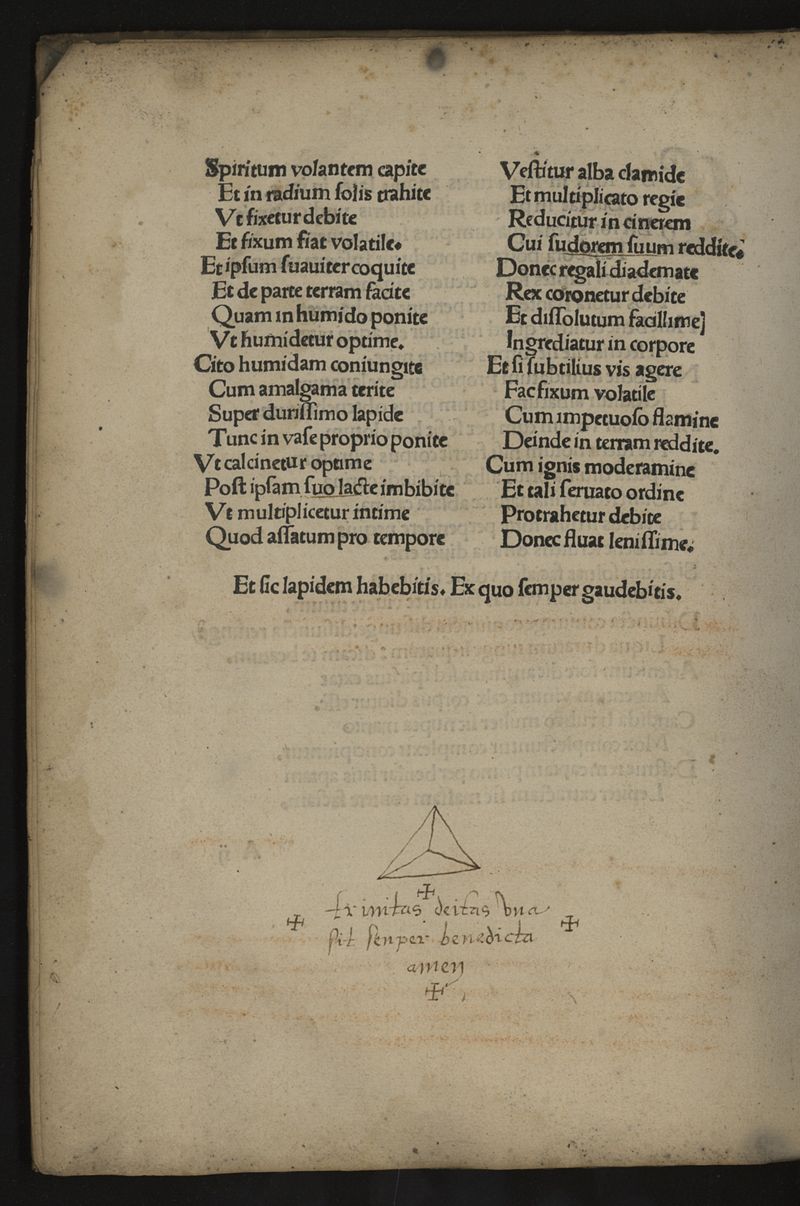 Spiritum volantem capite
Et in radium ſolis trahite
Vt fixetur debite
Et fixum fiat volatile.
Et ipſum ſuauiter coquite
Et de parte terram facite
Quam in humido ponite
Vt humidetur optime.
Cito humidam coniungite
Cum amalgama terite
Super duriſſimo lapide
Tunc in vaſe proprio ponite
Vt calcinetur optime
Poſt ipſam ſuo lacte imbibite
Vt multiplicetur intime
Quod aſſatum pro tempore
Veſtitur alba clamide
Et multiplicato regie
Reducitur in cinerem
Cui ſudorem ſuum reddite.
Donec regali diademate
Rex coronetur debite
Et diſſolutum facillime]
Ingrediatur in corpore
Et ſi ſubtilius vis agere
Fac fixum volatile
Cum impetuoſo flamine
Deinde in terram reddite.
Cum ignis moderamine
Et tali ſeruato ordine
Protrahetur debite
Donec fluat leniſſime.
Et ſic lapidem habebitis. Ex quo ſemper gaudebitis.
trinitas deitas vna
ſit ſenper benedicta
amen